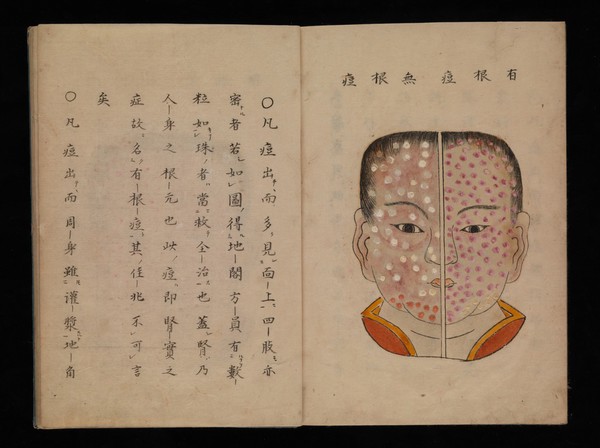 有根痘 無根痘
○凡痘出而多見面上四肢亦
密者若如圖得地閣方員有數
粒如珠者當救全治也蓋腎乃
人身之根元也此痘即腎實之
症故名有根痘其佳兆不可言
矣
○凡痘出而周身雖灌漿地角